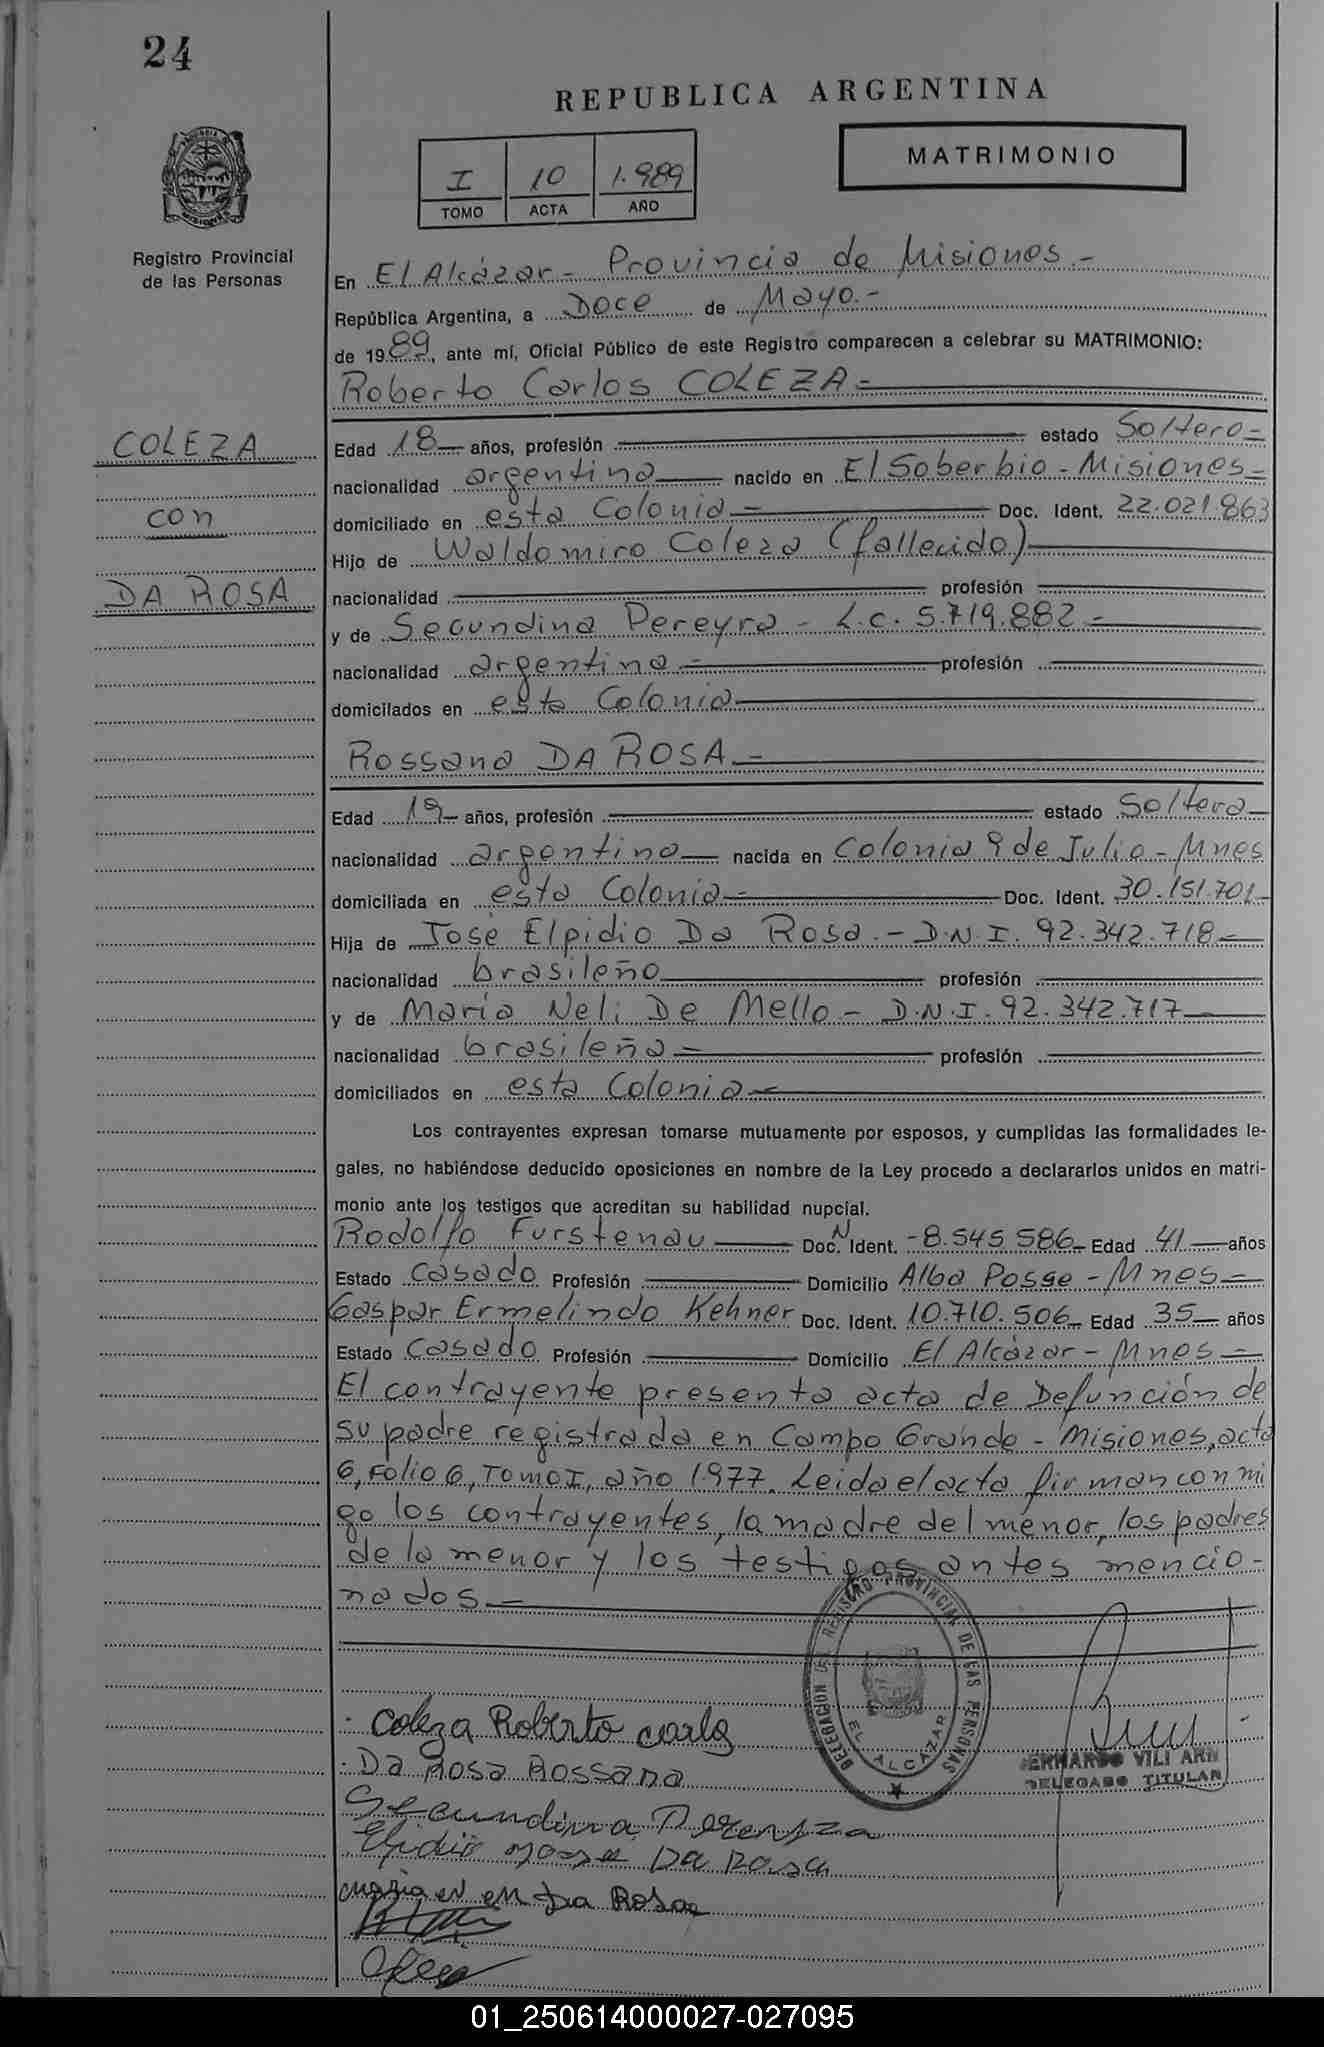 24
REPUBLICA ARGENTINA
MATRIMONIO
I 10 1.989
TOMO ACTA AÑO
Registro Provincial
de las Personas
En El Alcázar.- Provincia de Misiones.-
República Argentina, a Doce de Mayo.-
de 1989, ante mí, Oficial Público de este Registro comparecen a celebrar su MATRIMONIO:
Roberto Carlos COLEZA.-
COLEZA
con
DA ROSA
Edad 18 años, profesión estado Soltero-
nacionalidad argentina nacido en El Soberbio - Misiones-
domiciliado en esta Colonia- Doc. Ident. 22.021.863
Hijo de Waldomiro Coleza (fallecido)
nacionalidad profesión
y de Secundina Pereyra - L.C. 5.719.882.-
nacionalidad argentina.- profesión
domicilados en esta Colonia
Rossana DA ROSA.-
Edad 19- años, profesión estado Soltera-
nacionalidad argentina nacida en Colonia 9 de Julio - Mnes
domiciliada en esta Colonia- Doc. Ident. 30.151.701-
Hija de José Elpidio Da Rosa.- D.N.I. 92.342.718-
nacionalidad brasileño profesión
y de María Neli De Mello - D.N.I. 92.342.717-
nacionalidad brasileña- profesión
domiciliados en esta Colonia-
Los contrayentes expresan tomarse mutuamente por esposos, y cumplidas las formalidades le-
gales, no habiéndose deducido oposiciones en nombre de la Ley procedo a declararlos unidos en matri-
monio ante los testigos que acreditan su habilidad nupcial.
Rodolfo Furstenau Doc. N Ident. -8.545.586- Edad 41 años
Estado Casado Profesión Domicilio Alba Posse - Mnes-
Gaspar Ermelindo Kehner Doc. Ident. 10.710.506- Edad 35- años
Estado Casado Profesión Domicilio El Alcázar - Mnes-
El contrayente presenta acta de Defunción de
su padre registrada en Campo Grande - Misiones, acta
6, Folio 6, Tomo I, año 1.977. Leida el acta firman con mi
go los contrayentes, la madre del menor, los padres
de la menor y los testigos antes mencio-
nados.-
DELEGACION DEL REGISTRO PROVINCIAL DE LAS PERSONAS
EL ALCAZAR
Coleza Roberto Carlos
Da Rosa Rossana
VILI ARN
DELEGADO TITULAR
Secundina
Da Rosa
Da Rosa
01_250614000027-027095